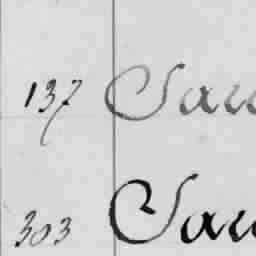 137 Sau
303 Sau